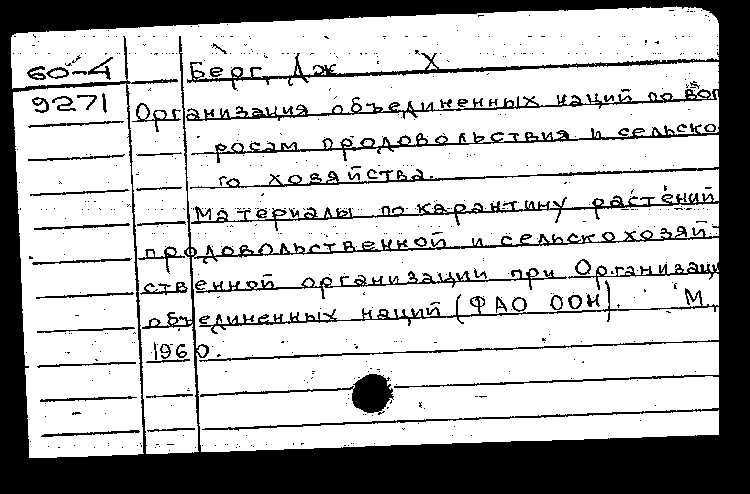 60-4 Берг, Дж Х
9271 Организация объединенных наций по воп
росам продовольствия и сельско
го хозяйства.
Материалы по карантину растений
продовольственной и сельскохозяй-
ственной организации при Организаци
объединенных наций (ФАО ООН). М.,
1960.